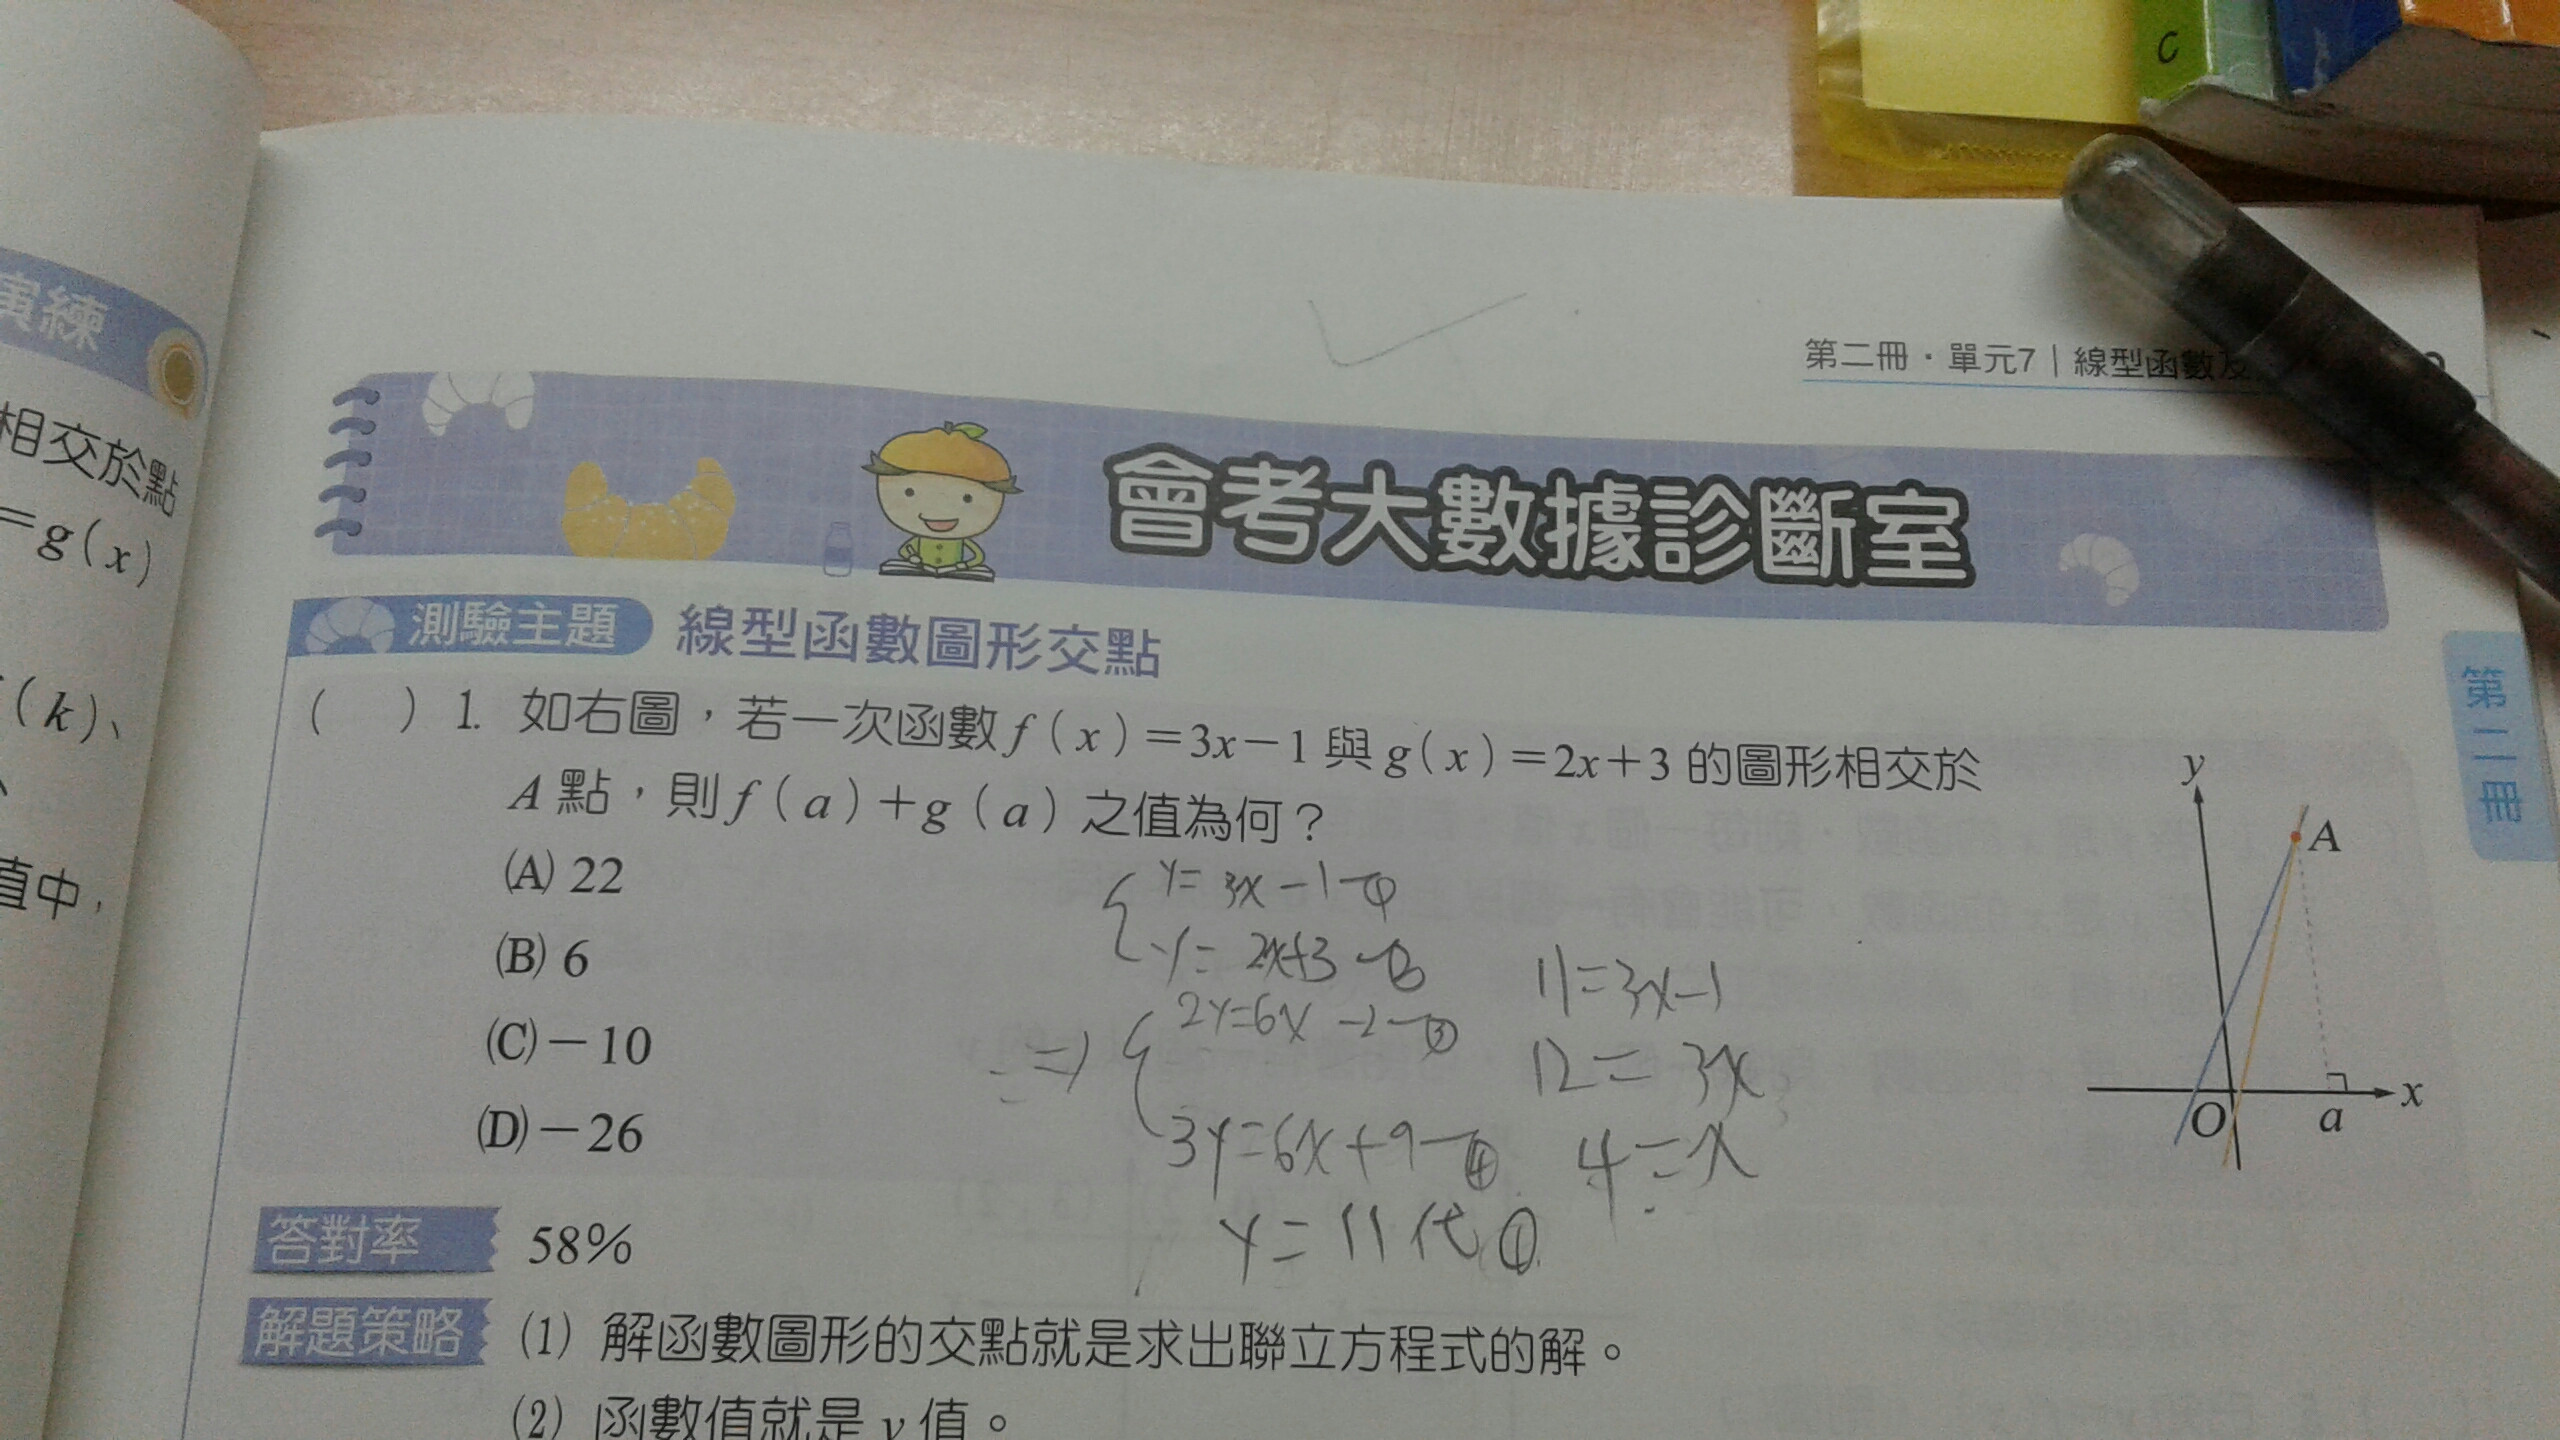 C
第二冊．單元7｜線型函數及
演練
相交於點
=g(x)
(k)、
值中，
會考大數據診斷室
測驗主題 線型函數圖形交點
第二冊
( ) 1. 如右圖，若一次函數f(x)=3x-1與g(x)=2x+3的圖形相交於
A點，則f(a)+g(a)之值為何？
(A) 22
(B) 6
(C) -10
(D) -26
y
A
O
a
x
y=3x-1-①
y=2x+3-②
=> 2y=6x-2-③
3y=6x+9-④
y=11代①
11=3x-1
12=3x
4=x
答對率 58%
解題策略 (1) 解函數圖形的交點就是求出聯立方程式的解。
(2) 函數值就是y值。